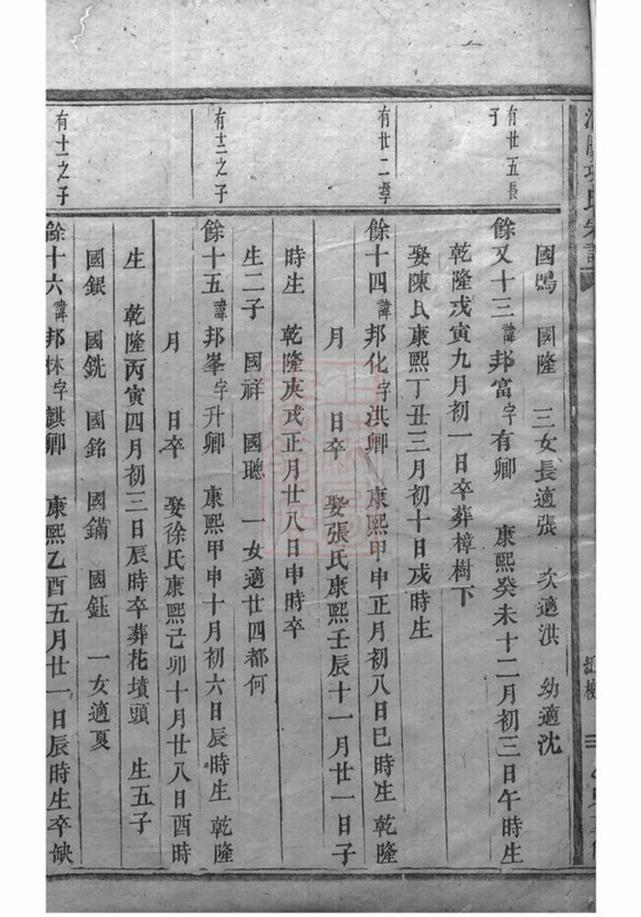 國鳴 國隆 三女長適張 次適洪 幼適沈
有廿五長子
餘又十三諱邦富字有卿 康熙癸未十二月初三日午時生
乾隆戊寅九月初一日卒葬樟樹下
娶陳氏康熙丁丑三月初十日戌時生
有廿二季
餘十四諱邦化字洪卿 康熙甲申正月初八日巳時生 乾隆
月 日卒 娶張氏康熙壬辰十一月廿一日子
時生 乾隆庚戌正月廿八日申時卒
生二子 國祥 國聰 一女適廿四都何
有十三之子
餘十五諱邦峯字升卿 康熙甲申十月初六日辰時生 乾隆
月 日卒 娶徐氏康熙己卯十月廿八日酉時
生 乾隆丙寅四月初三日辰時卒葬花墳頭 生五子
國銀 國銑 國銘 國鏋 國鈺 一女適夏
有十一之子
餘十六諱邦林字麒卿 康熙乙酉五月廿一日辰時生卒缺